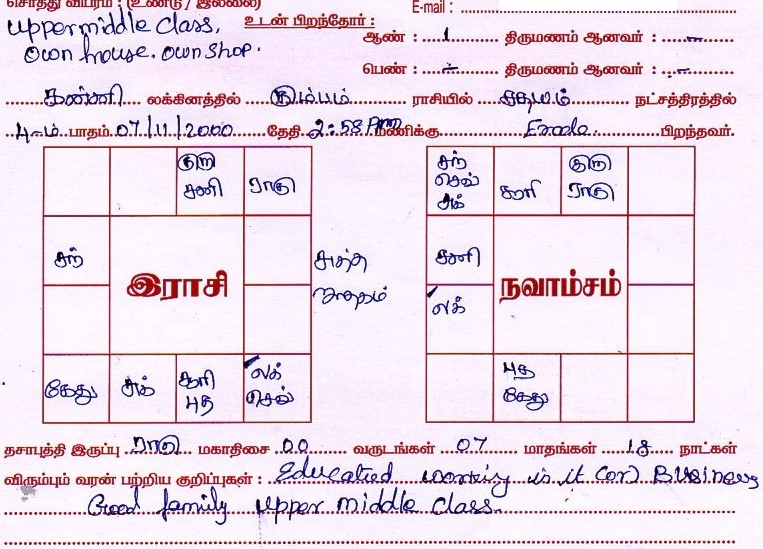 சொத்து விபரம் : (உண்டு / இல்லை) E-mail :
upper middle class, உடன் பிறந்தோர் :
own house. own shop.
ஆண் : 1 திருமணம் ஆனவர் : -
பெண் : - திருமணம் ஆனவர் : -
கன்னி லக்கினத்தில் கும்பம் ராசியில் சதயம் நட்சத்திரத்தில்
4-ம் பாதம் 07/11/2000 தேதி 2:58 PM மணிக்கு Erode. பிறந்தவர்.
குரு சனி ராகு
சந்
இராசி
கேது சுக் சூரி புத லக் செவ்
சந் செவ் சுக் சூரி குரு ராகு
சனி
நவாம்சம்
லக்
புத கேது
தசாபுத்தி இருப்பு ராகு மகாதிசை 00 வருடங்கள் 07 மாதங்கள் 18 நாட்கள்
விரும்பும் வரன் பற்றிய குறிப்புகள் : Educatied working is it (or) Business
Good family upper middle class.